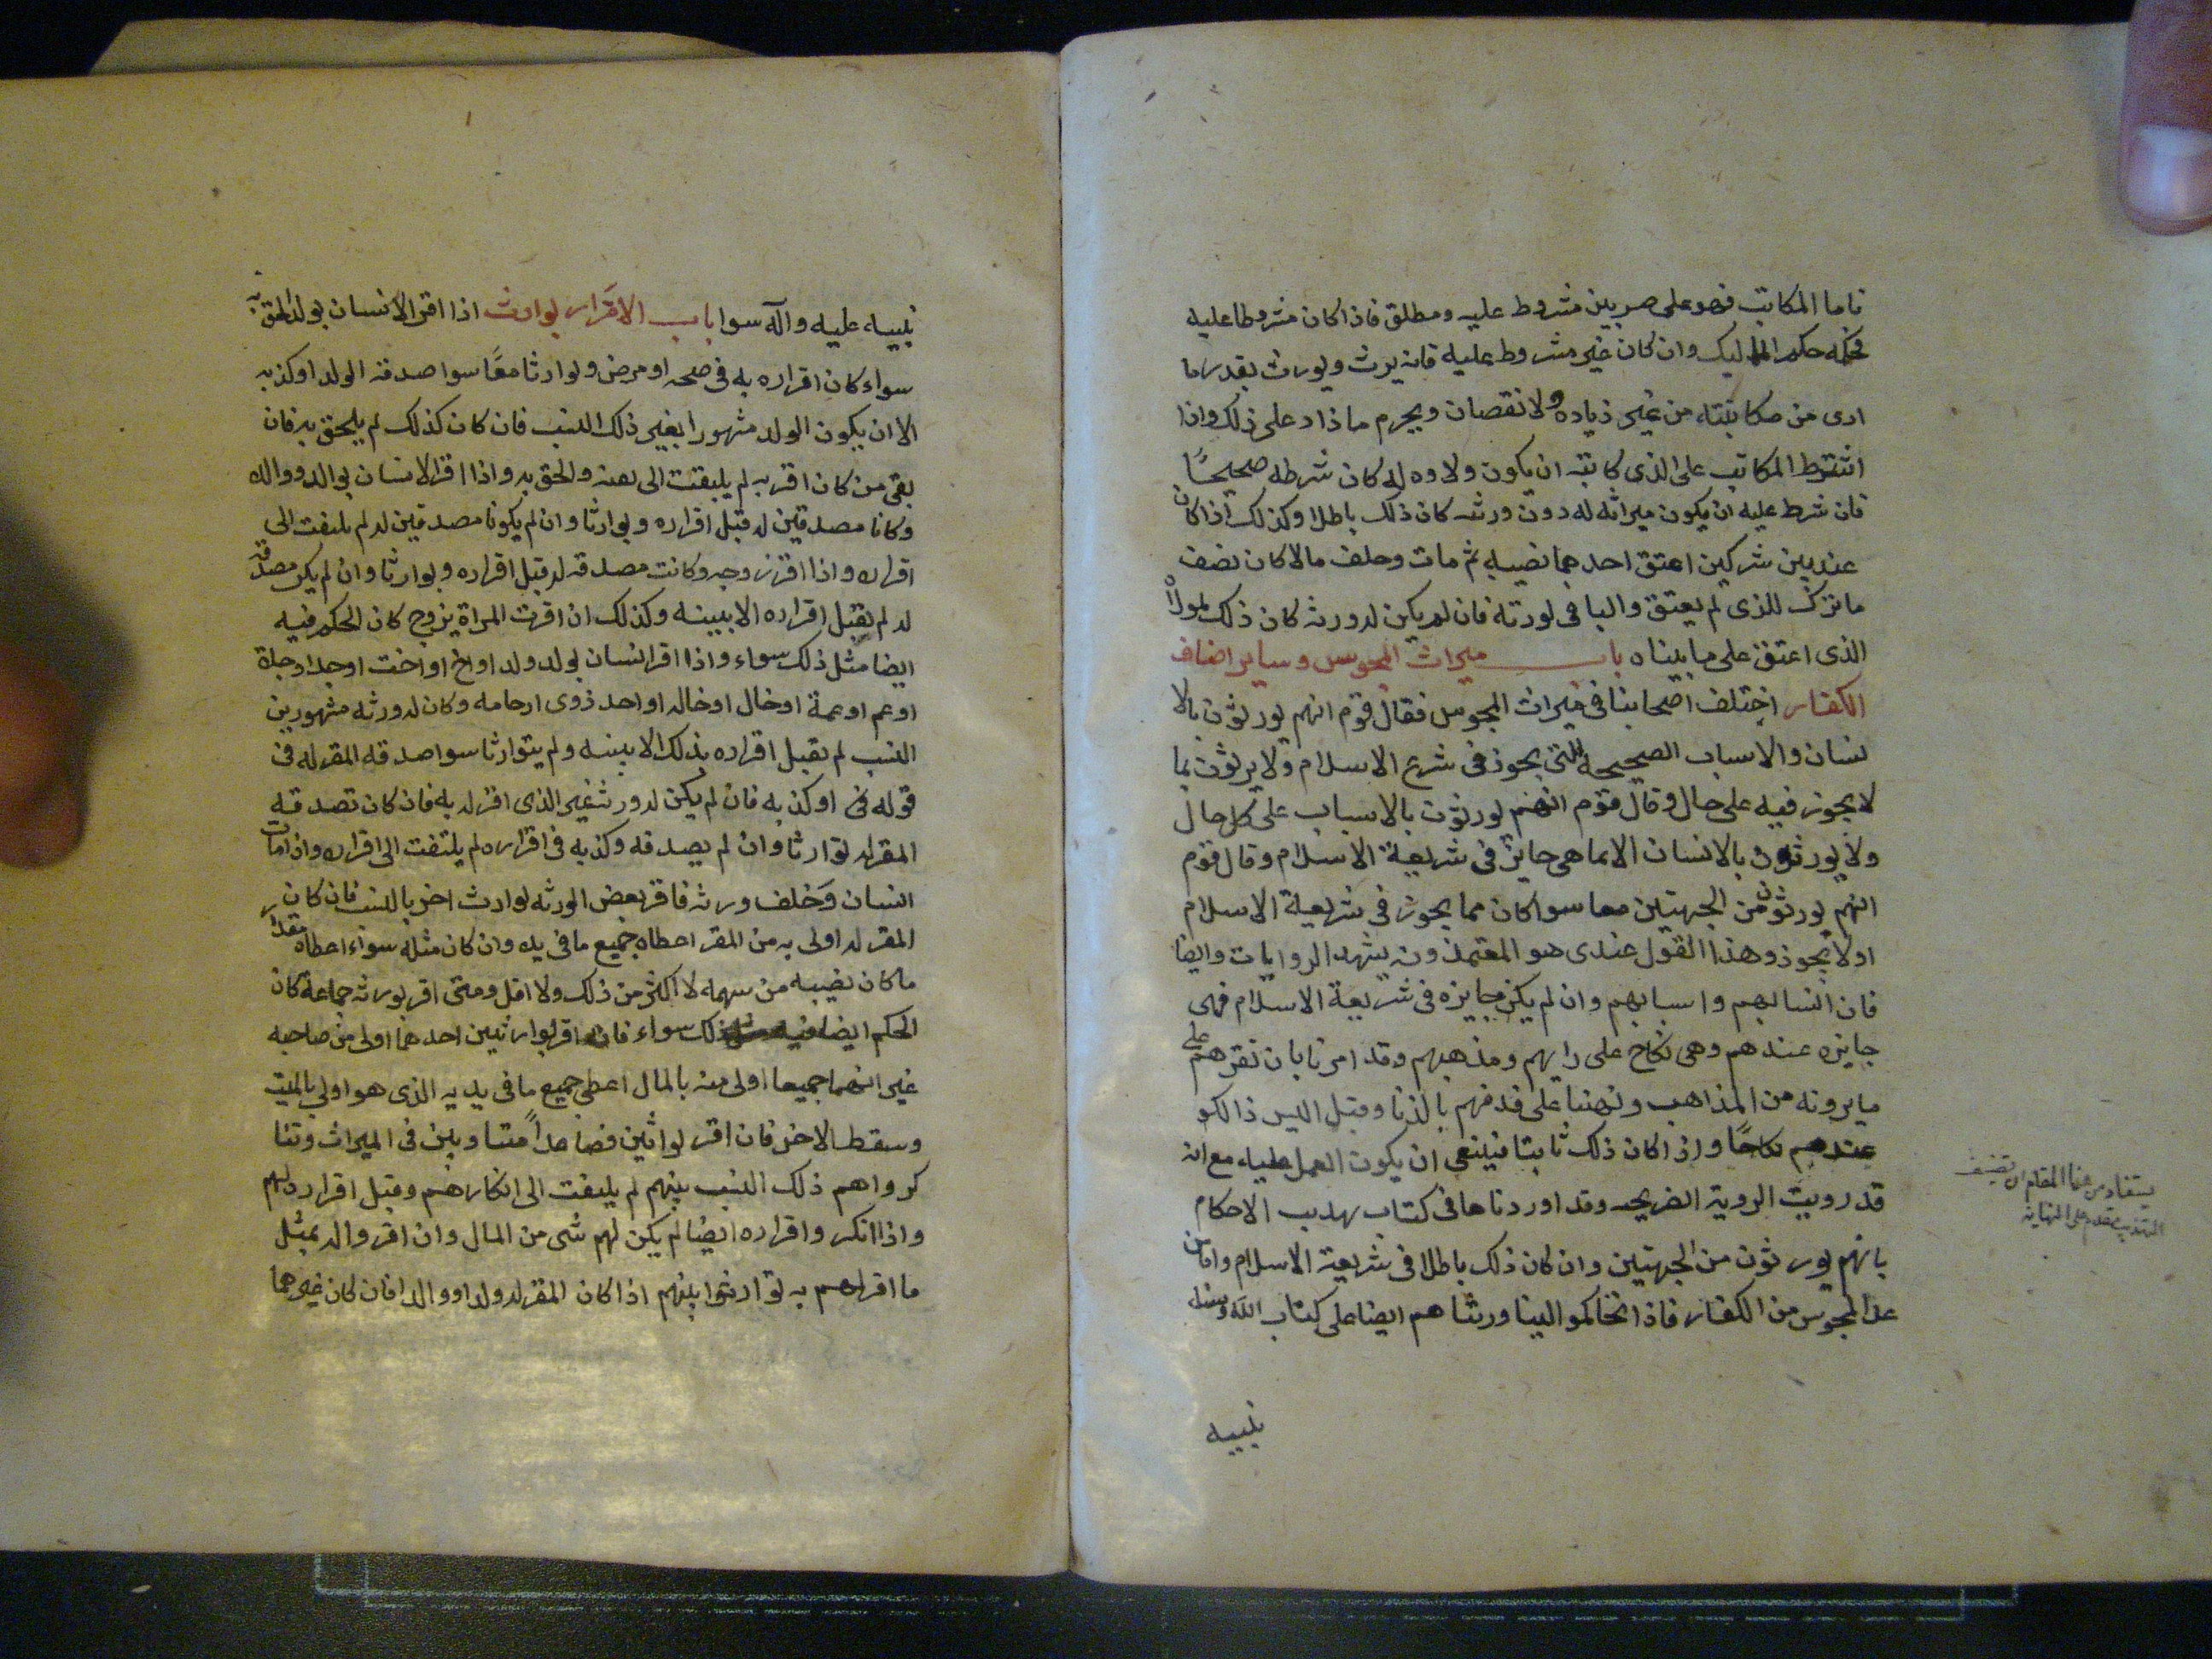 فاما المكاتب فهو على ضربين مشروط عليه ومطلق فاذا كان مشروطا عليه
فحكمه حكم المماليك وان كان غير مشروط عليه فانه يرث ويورث بقدر ما
ادى من مكاتبته من غير زياده ولا نقصان ويحرم ما زاد على ذلك واذا
اشترط المكاتب على الذى كاتبه ان يكون ولاوه له كان شرطه صحيحًا
فان شرط عليه ان يكون ميراثه له دون ورثته كان ذلك باطلا وكذلك اذا كان
عند بين شركين اعتق احدهما نصيبه ثم مات وخلف مالا كان نصف
ما ترك للذى لم يعتق والباقى لورثته فان لم يكن له ورثه كان ذلك لمولاه
الذى اعتق على ما بيناه باب ميراث المجوس وساير اصناف
الكفار اختلف اصحابنا فى ميراث المجوس فقال قوم انهم يورثون بالا
نساب والاسباب الصحيحه اللتى يجوز فى شرع الاسلام ولا يرثون بما
لا يجوز فيه على حال وقال قوم انهم يورثون بالاسباب على كل حال
ولا يورثون بالانساب الا بما هى جايز فى شريعة الاسلام وقال قوم
انهم يورثون من الجهتين معا سوا كان مما يجوز فى شريعة الاسلام
اولا يجوز وهذا القول عندى هو المعتمد وبه يشهد الروايات وايضا
فان انسابهم واسبابهم وان لم يكن جايزه فى شريعة الاسلام فهى
جايزه عندهم وهى نكاح على رايهم ومذهبهم وقد امرنا بان نقرهم على
ما يرونه من المذاهب ونهينا على قذفهم بالزنا وقيل اليس ذالكو
عندهم نكاحًا واذا كان ذلك ثابتا فينبغى ان يكون العمل عليه مع انه
قد رويت الروية الصريحه وقد اوردناها فى كتاب تهذيب الاحكام
بانهم يورثون من الجهتين وان كان ذلك باطلا فى شريعة الاسلام واما من
عدا المجوس من الكفار فاذا تحاكموا الينا ورثناهم ايضا على كتاب الله وسنة
نبييه
يستفاد من هذا المقام ان تصنيف
التهذيب مقدم على النهاية
نبييه عليه وآله سوا باب الاقرار بوارث اذا اقر الانسان بولد لحق به
سواء كان اقراره به فى صحه او مرض وتوارثا معًا سوا صدقه الولد او كذبه
الا ان يكون الولد مشهورا بغير ذلك النسب فان كان كذلك لم يلحق به فان
نفى من كان اقر به لم يلتفت الى نفيه والحق به واذا اقر الانسان بوالد ووالده
وكانا مصدقين له قبل اقراره وتوارثا وان لم يكونا مصدقين له لم يلتفت الى
اقراره واذا اقر زوجه وكانت مصدقه له قبل اقراره وتوارثا وان لم يكن مصدقه
له لم يقبل اقراره الا ببينه وكذلك ان اقرت المراة بزوج كان الحكم فيه
ايضا مثل ذلك سواء واذا اقر انسان بولد ولد او اخ او اخت او جد او جدة
او عم او عمة او خال او خاله او احد ذوى ارحامه وكان له ورثه مشهورين
النسب لم يقبل اقراره بذلك الا ببينه ولم يتوارثا سوا صدقه المقر له فى
قوله فى او كذبه فان لم يكن له ورثه غير الذى اقر له به فان كان تصدقه
المقر له توارثا وان لم يصدقه وكذبه فى اقراره لم يلتفت الى اقراره واذا مات
انسان وَخلف ورثه فاقر بعض الورثه بوارث اخر بالنسب فان كان
المقر له اولى به من المقر اعطاه جميع ما فى يده وان كان مثله سواء اعطاه مقدار
ما كان نصيبه من سهمه لا اكثر من ذلك ولا اقل ومتى اقر بورثه جماعة كان
الحكم ايضا فيه مثل ذلك سواء فان اقر بوارثين احدهما اولى من صاحبه
غير انهما جميعا اولى منه بالمال اعطى جميع ما فى يديه الذى هو اولى بالميت
وسقط الاخر فان اقر بواثين فصاعداً متساويين فى الميراث وتنا
كروا هم ذلك النسب بينهم لم يلتفت الى انكارهم وقبل اقراره لهم
واذا انكر واقراره ايضا لم يكن لهم شى من المال وان اقر والد بمثل
ما اقر لهم به توارثوا بينهم اذا كان المقر له ولدا ووالدا فان كان غيرهما